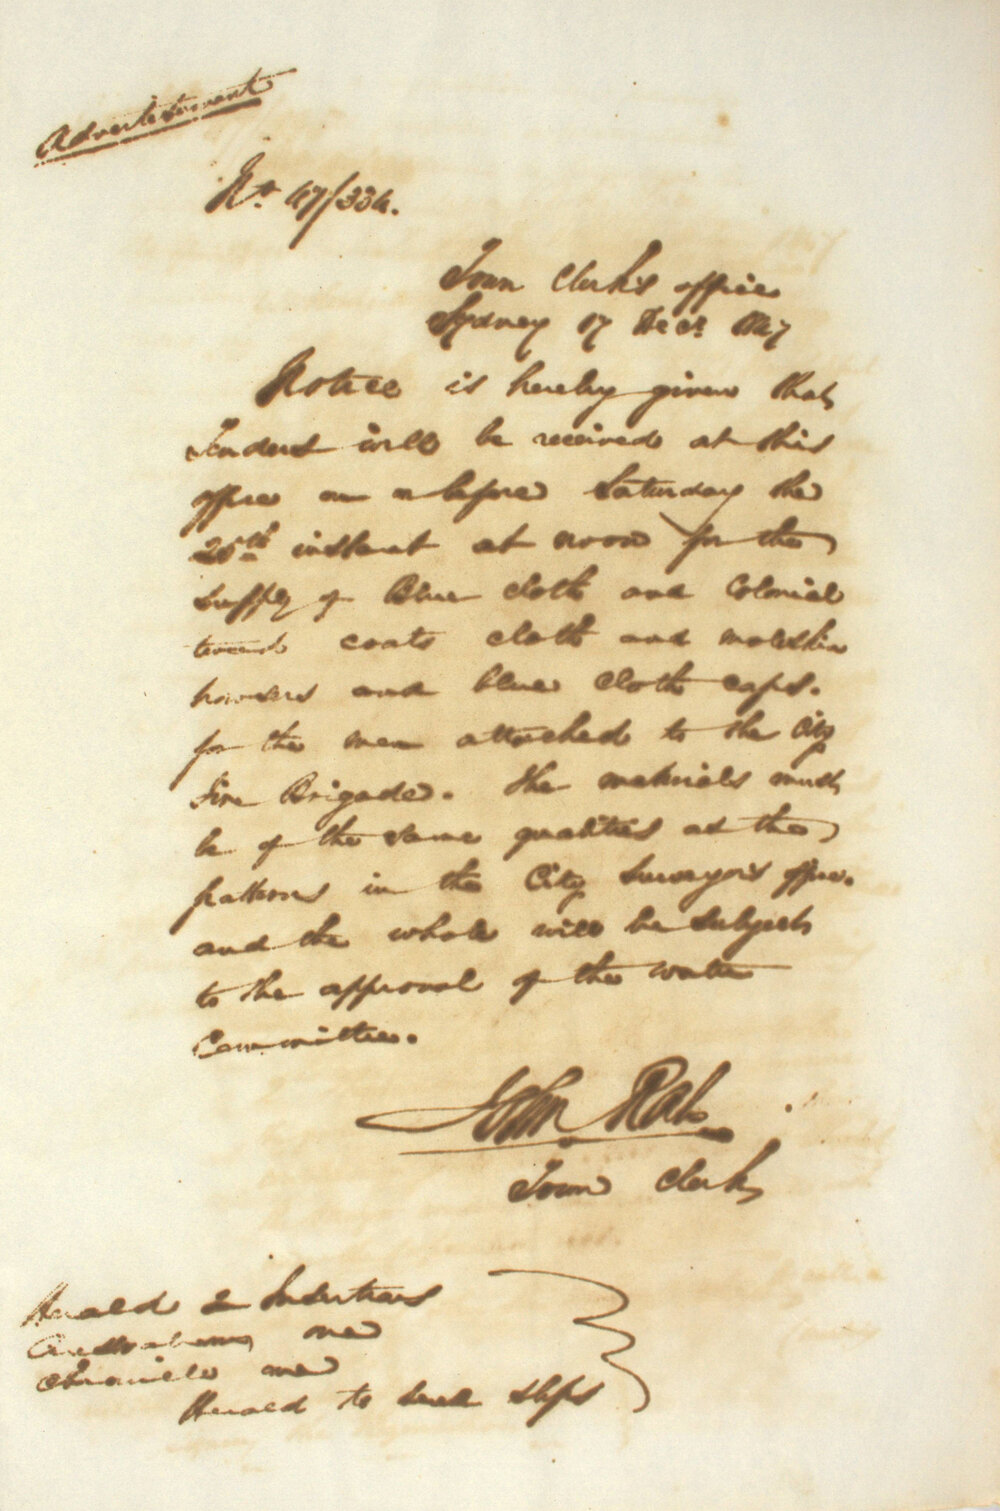 Advertisement
No. 47/334.
Town Clerk's office
Sydney 17 Decr. 1847
Notice is hereby given that
Tenders will be received at this
office on or before Saturday the
25th instant at noon for the
supply of Blue cloth and Colonial
tweed coats cloth and moleskin
trowsers and blue cloth caps.
for the men attached to the City
Fire Brigade. The materials must
be of the same qualities as the
patterns in the City Surveyor's office.
and the whole will be subject
to the approval of the Water
Committee.
John Rae
Town Clerk
Herald 2 Insertions
Australian one
Chronicle one
Herald to send slips